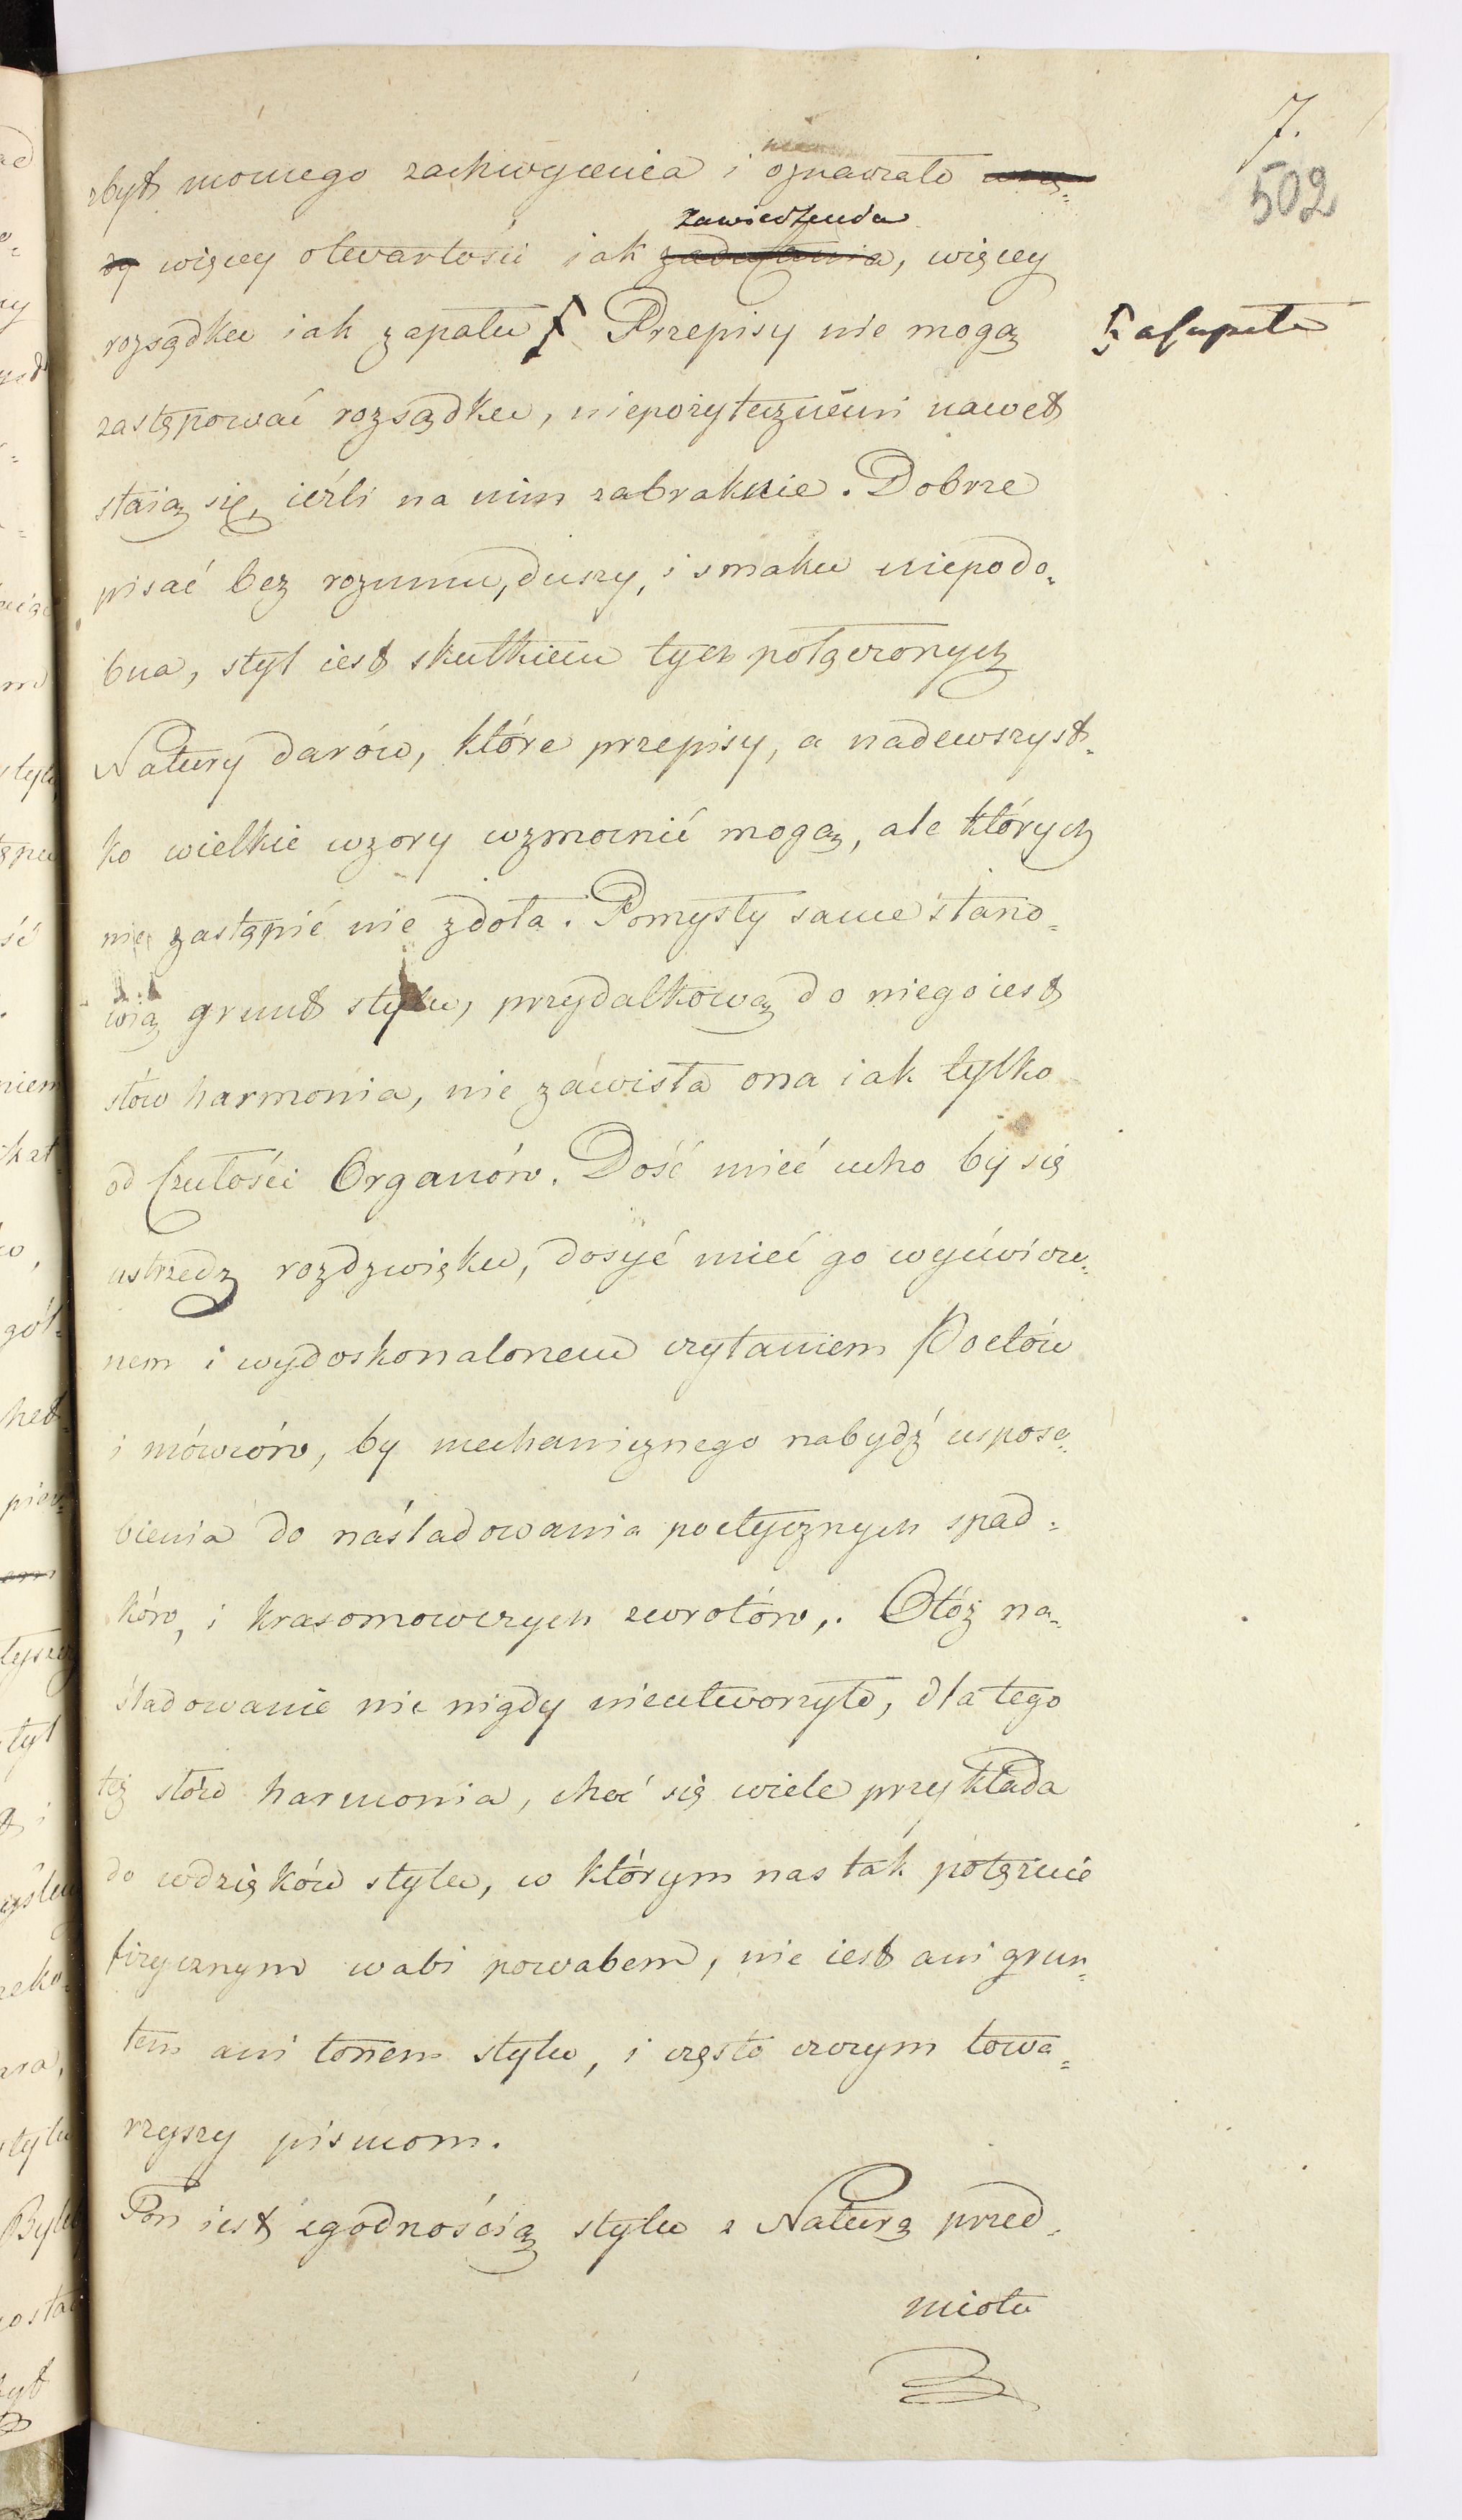 7.
502
zbyt mownego zachwycenia i oznaczało
zawiedzenda
więcey otwartości iak zadufania, więcey
rozsądku iak zapału Przepisy nie mogą
zastępować rozsądku, niepożytecznemi nawet
staią się, ieźli na nim zabraknie. Dobrze
pisać bez rozumu, duszy, i smaku niepodo-
bna, styl iest skutkiem tych połączonych
Natury darów, które przepisy, a nadewszyst-
ko wielkie wzory wzmocnić mogą, ale których
nic zastąpić nie zdoła. Pomysły same stano-
wią grunt stylu, przydatkową do niego iest
słów harmonia, nie zawisła ona iak tylko
od Czułości Organów. Dość mieć ucho by się
ustrzedz rozdzwięku, dosyć mieć go wyćwiczo-
nem i wydoskonalonem czytaniem Poetów
i mówców, by mechanicznego nabydź uspose-
bienia do naśladowania poetycznych spad-
ków, i krasomowczych zwrotów,. Otóż na-
śladowanie nic nigdy nieutworzyło, dla tego
też słów harmonia, choć się wiele przykłada
do wdzięków stylu, w którym nas tak potężnie
fizycznym wabi powabem, nie iest ani grun-
tem ani tonem stylu, i często czczym towa-
rzyszy pismom.
Ton iest zgodnością stylu z Naturą przed-
miotu